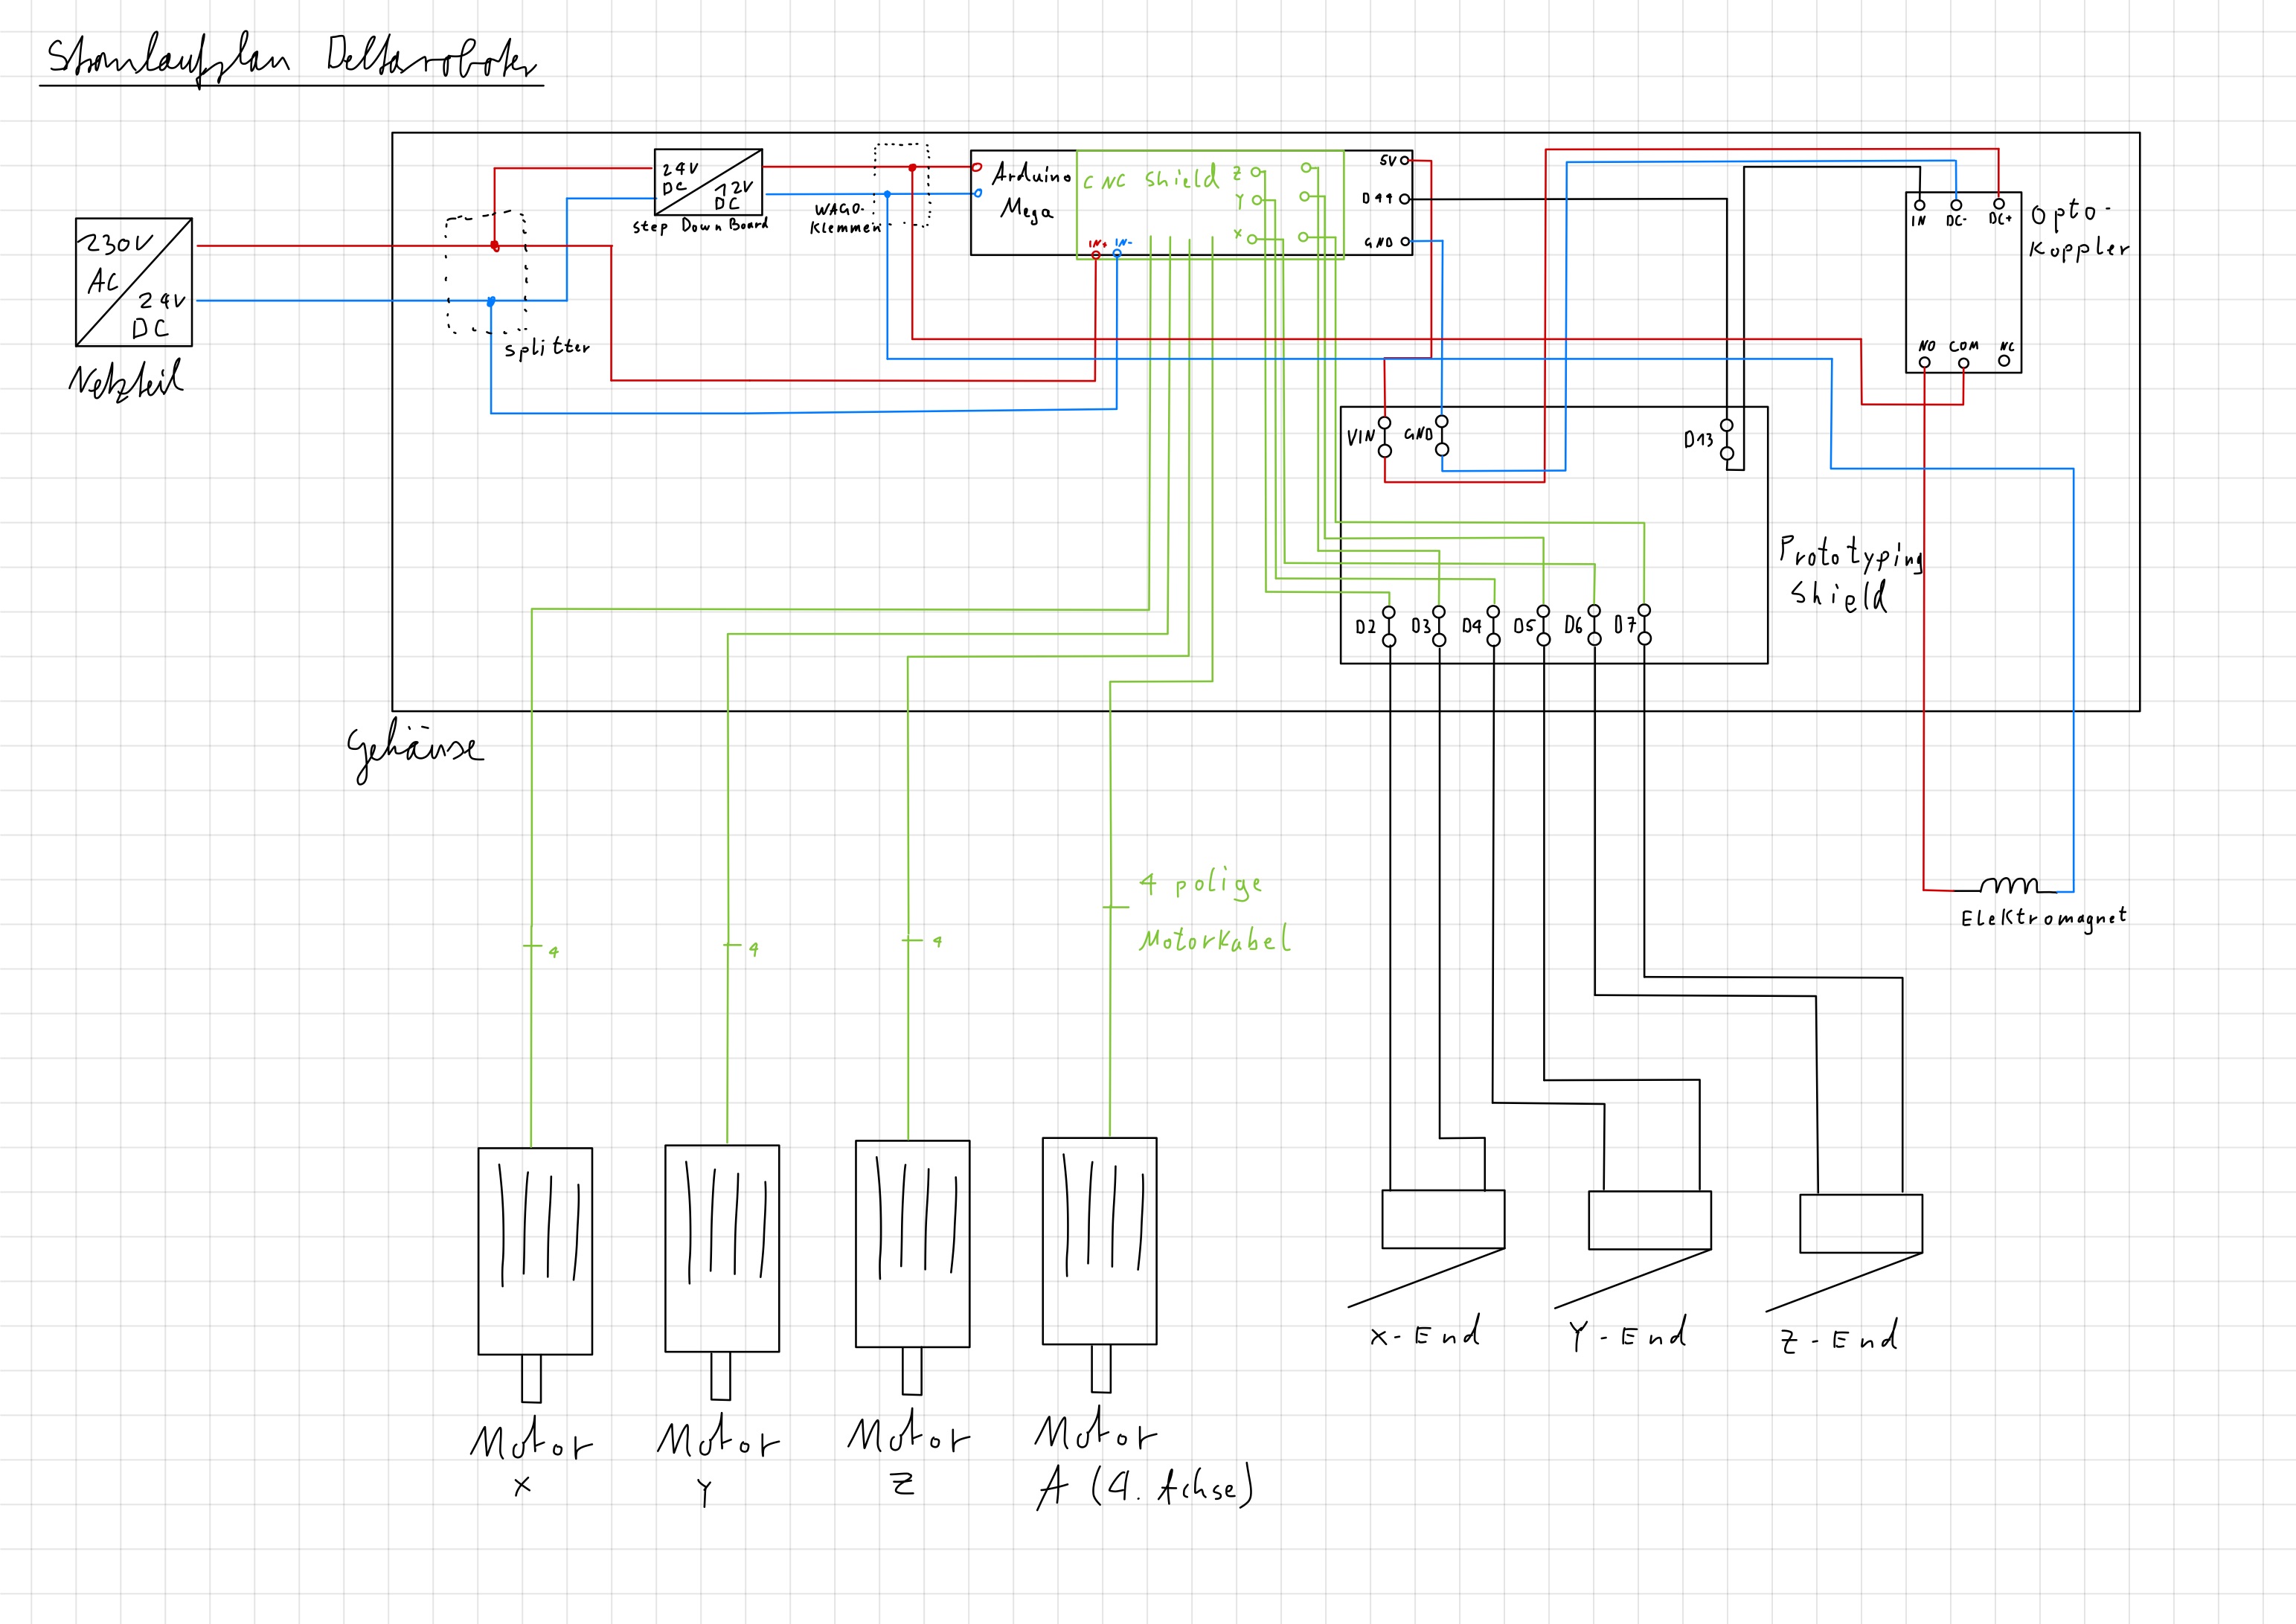 Stromlaufplan Deltaroboter
230V
AC
24V
DC
Netzteil
splitter
24V
DC
12V
DC
Step Down Board
WAGO-
Klemmen
Arduino
Mega
CNC Shield
Z
Y
X
IN+ IN-
5V
D44
GND
IN DC- DC+
Opto-
Koppler
NO COM NC
VIN GND D13
Prototyping
Shield
D2 D3 D4 D5 D6 D7
Gehäuse
4 polige
Motorkabel
4 4 4
Elektromagnet
X-End Y-End Z-End
Motor Motor Motor Motor
X Y Z A (4. Achse)